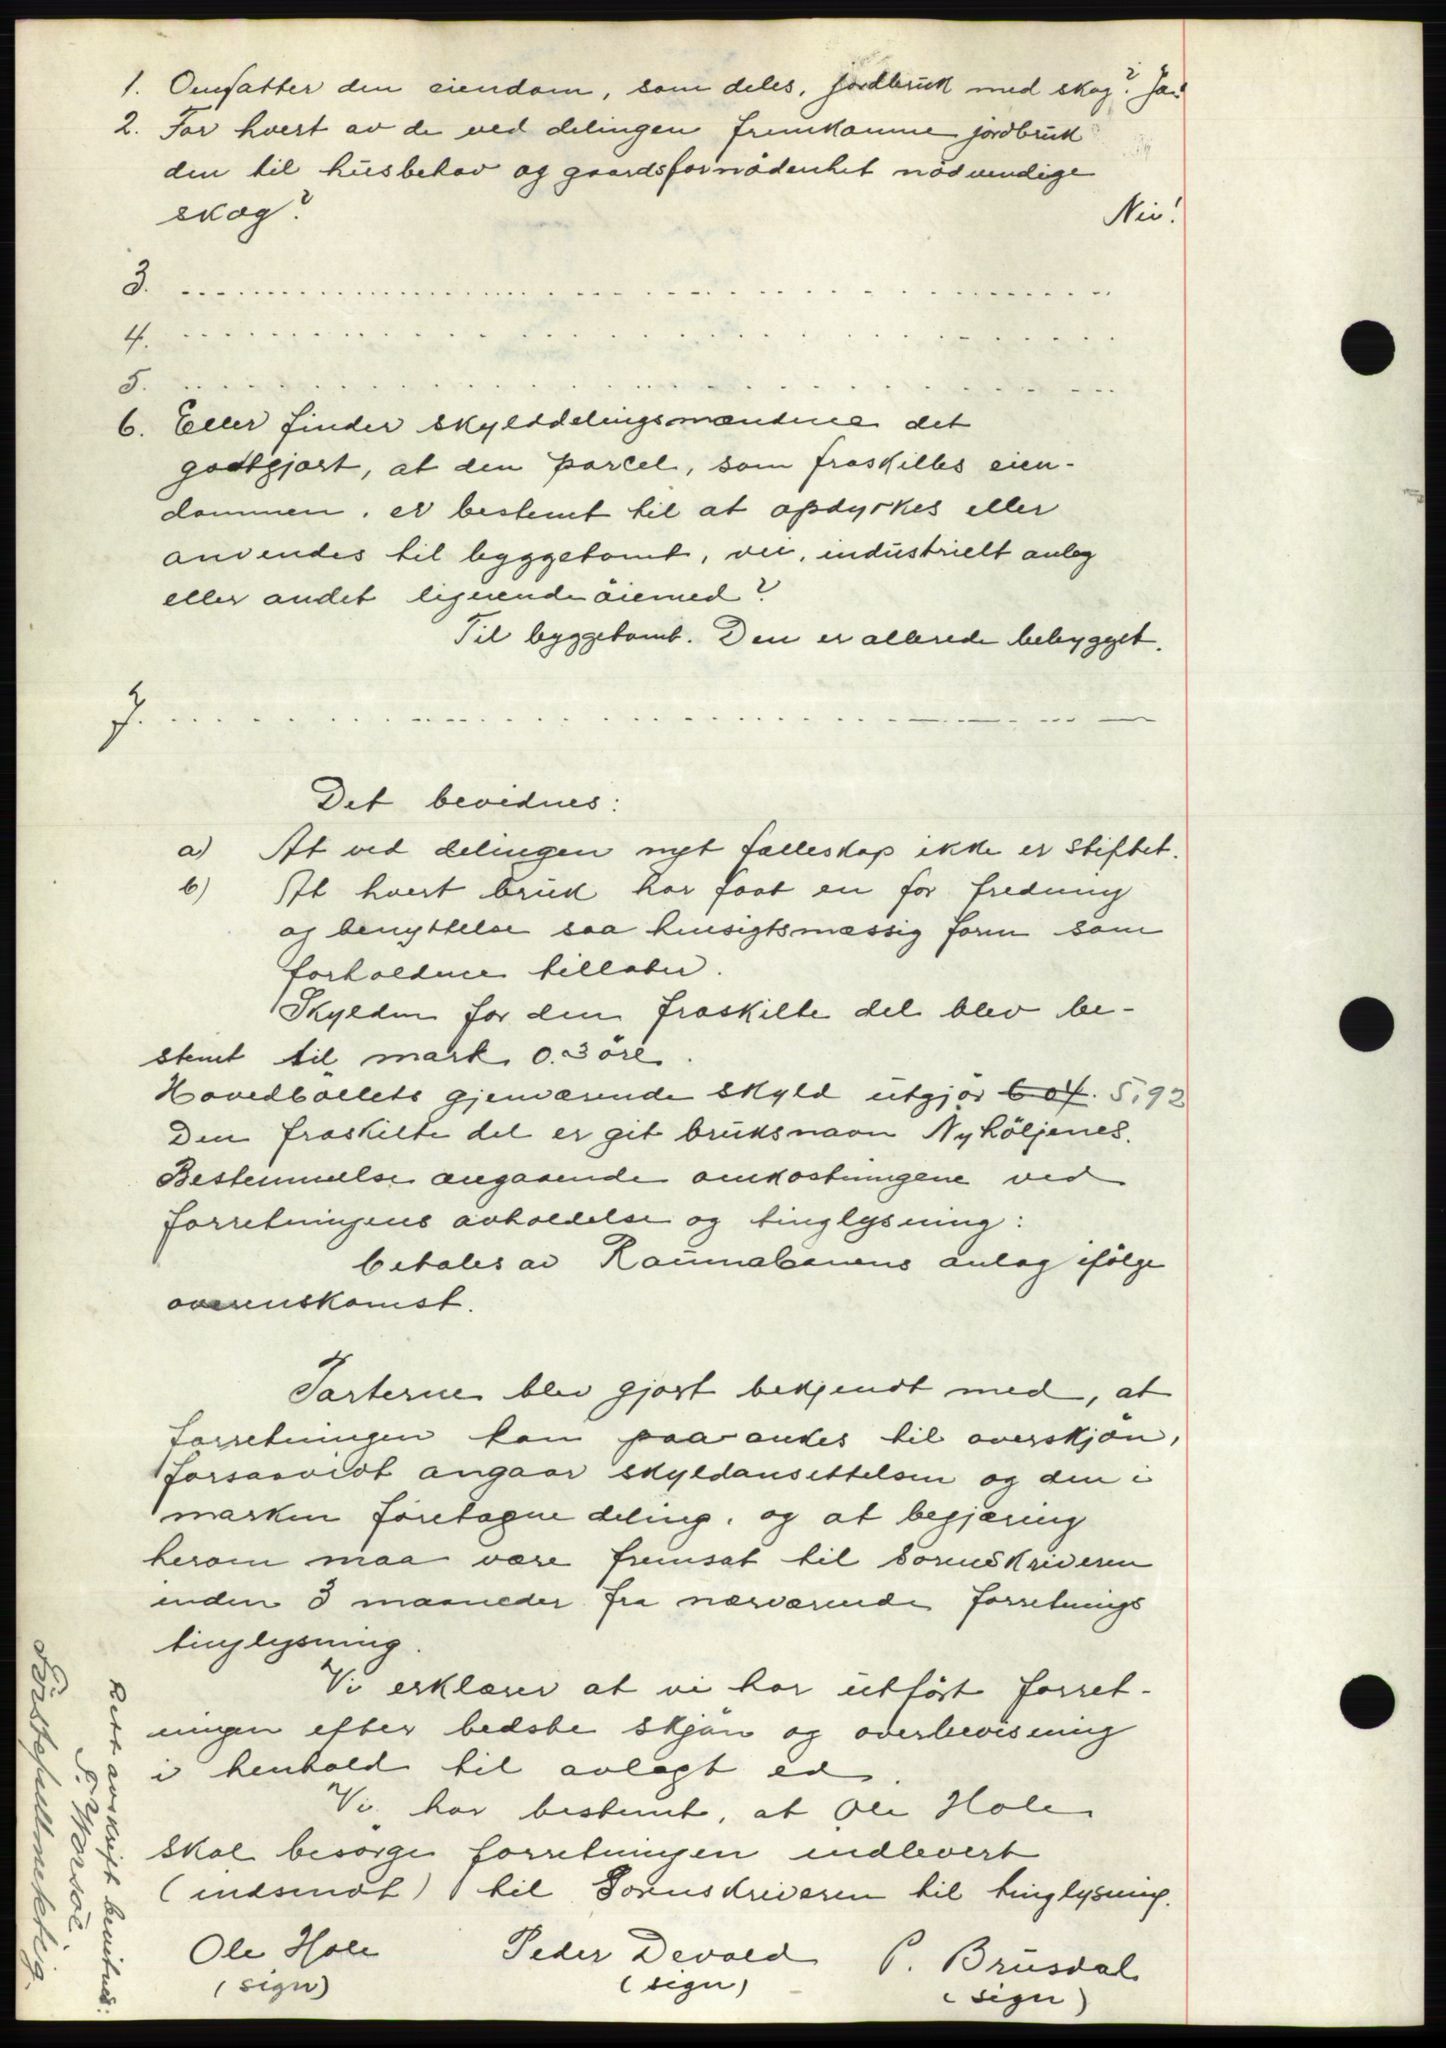 1. Omfatter den eiendom, som deles, jordbruk med skog? Ja!
2. Får hvert av de ved delingen fremkomne jordbruk
den til husbehov og gaardsfornödenhet nödvendige
skog? Nei!
3. ..............................
4. ..............................
5. ..............................
6. Eller finder skylddelingsmændene det
godtgjort, at den parcel, som fraskilles eien-
dommen, er bestemt til at opdyrkes eller
anvendes til byggetomt, vei, industrielt anlæg
eller andet lignende öiemed?
Til byggetomt. Den er allerede bebygget.
7. ..............................
Det bevidnes:
a) At ved delingen nyt fælleskap ikke er stiftet.
b) At hvert bruk har faat en for fredning
og benyttelse saa hensigtsmæssig form som
forholdene tillater.
Skylden for den fraskilte del blev be-
stemt til mark 0.3 öre.
Hovedböllets gjenværende skyld utgjör 6 04. 5,92
Den fraskilte del er git bruksnavn Nyhöljenes.
Bestemmelse angaaende omkostningene ved
forretningens avholdelse og tinglysning:
betales av Raumabanens anlæg ifölge
overenskomst.
Parterne blev gjort bekjendt med, at
forretningen kan paa-ankes til overskjön,
forsaavidt angaar skyldansettelsen og den i
marken foretagne deling, og at begjæring
herom maa være fremsat til sorenskriveren
inden 3 maaneder fra nærværende forretnings
tinglysning.
Vi erklærer at vi har utfört forret-
ningen efter bedste skjön og overbevisning
i henhold til avlagt ed.
Vi har bestemt, at Ole Hole
skal besörge forretningen indlevert
(indsendt) til Sorenskriveren til tinglysning.
Ole Hole Peder Devold P. Brüsdal
(sign) (sign) (sign)
Rett avskrift bevitnes:
Förstefullmektig.